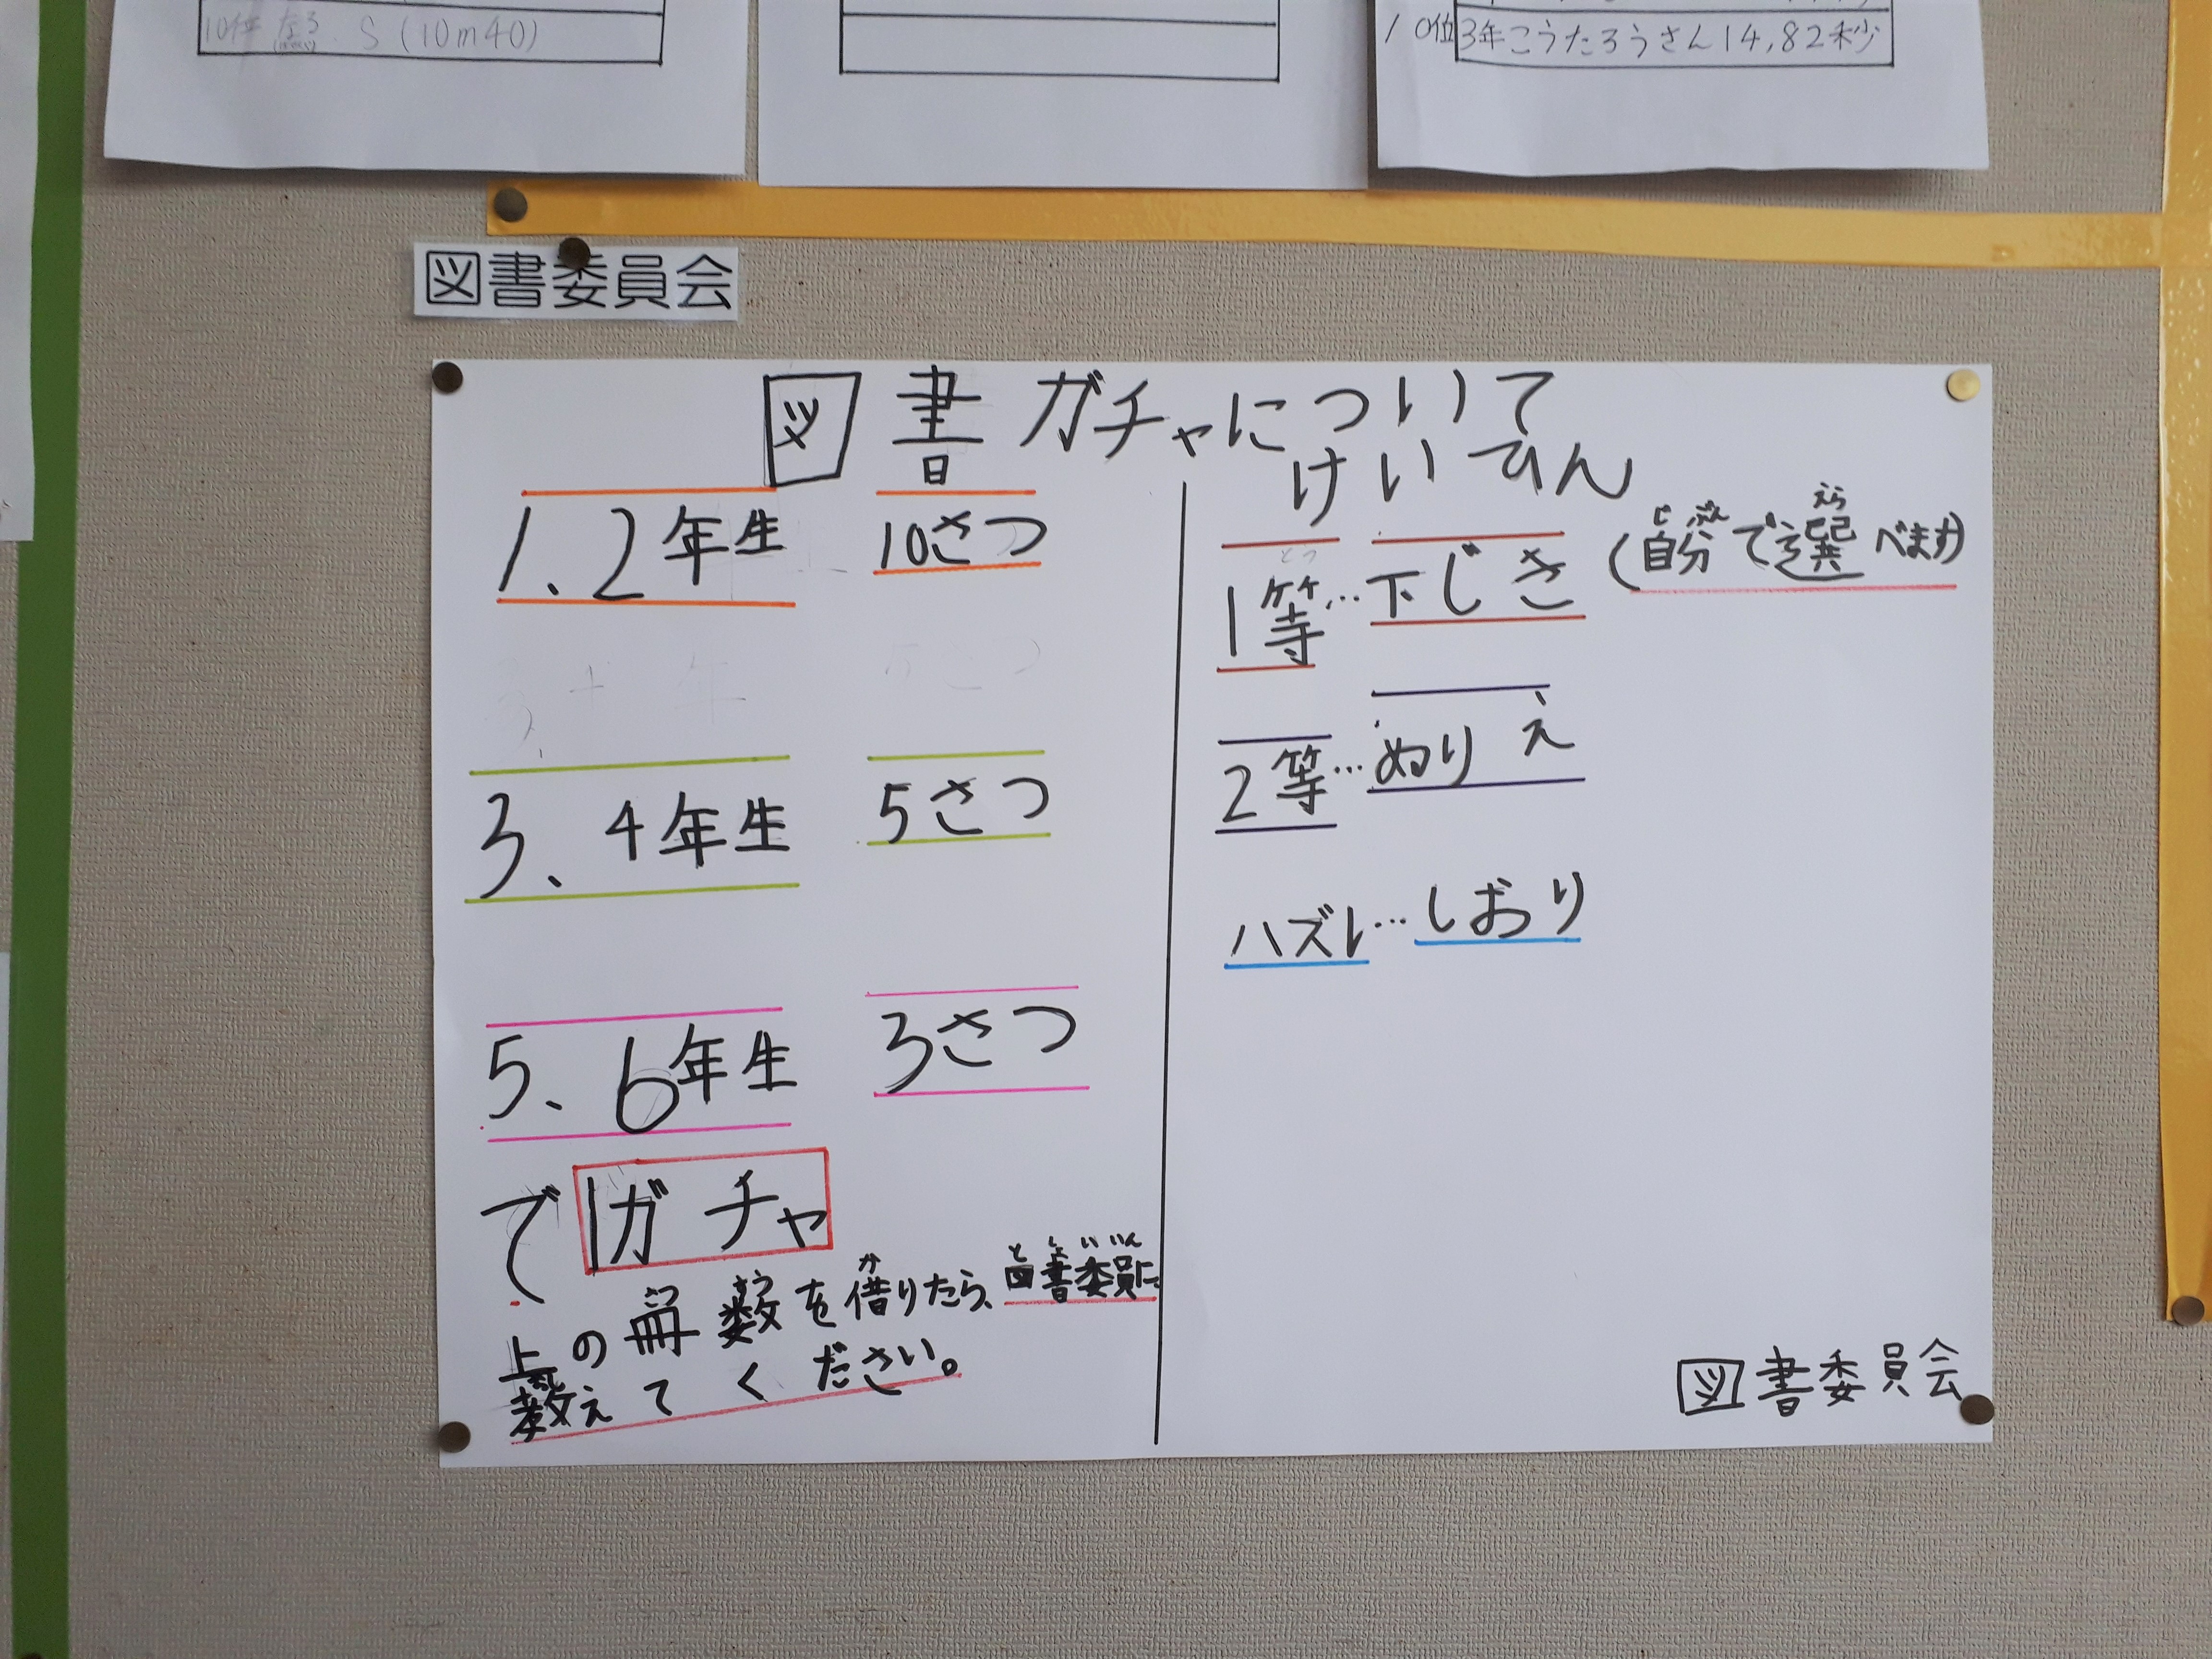 S (10m40)
10位
3年こうたろうさん14,82秒
図書委員会
図書ガチャについて
1、2年生 10さつ
3、4年生 5さつ
5、6年生 3さつ
で 1ガチャ
上の冊数を借りたら、図書委員に
教えてください。
けいひん
1等…下じき (自分で選べます)
2等…ぬりえ
ハズレ…しおり
図書委員会